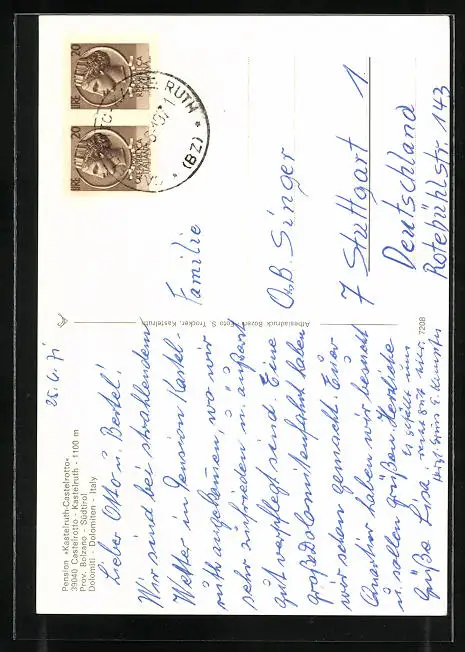 Pension «Kastelruth-Castelrotto»
39040 Castelrotto - Kastelruth - 1100 m
Prov. Bolzano - Südtirol
Dolomiti - Dolomiten - Italy
25.6.71
Lieber Otto u. Bertel!
Wir sind bei strahlendem
Wetter in Pension Kastel-
ruth angekommen, wo wir
sehr zufrieden u. äußerst
gut verpflegt sind. Eine
große Dolomitenfahrt haben
wir schon gemacht. Euer
Quartier haben wir besucht
u. sollen grüßen. Herzliche
Grüße Lisa.
Es gefällt uns
recht gut hier.
7208
Athesiadruck Bozen - Foto S. Trocker, Kastelruth
LIRE 20
REPUBBLICA ITALIANA
LIRE 20
REPUBBLICA ITALIANA
RUTH
* (BZ) *
Familie
O. u. B. Singer
7 Stuttgart 1.
Deutschland
Rotebühlstr. 143